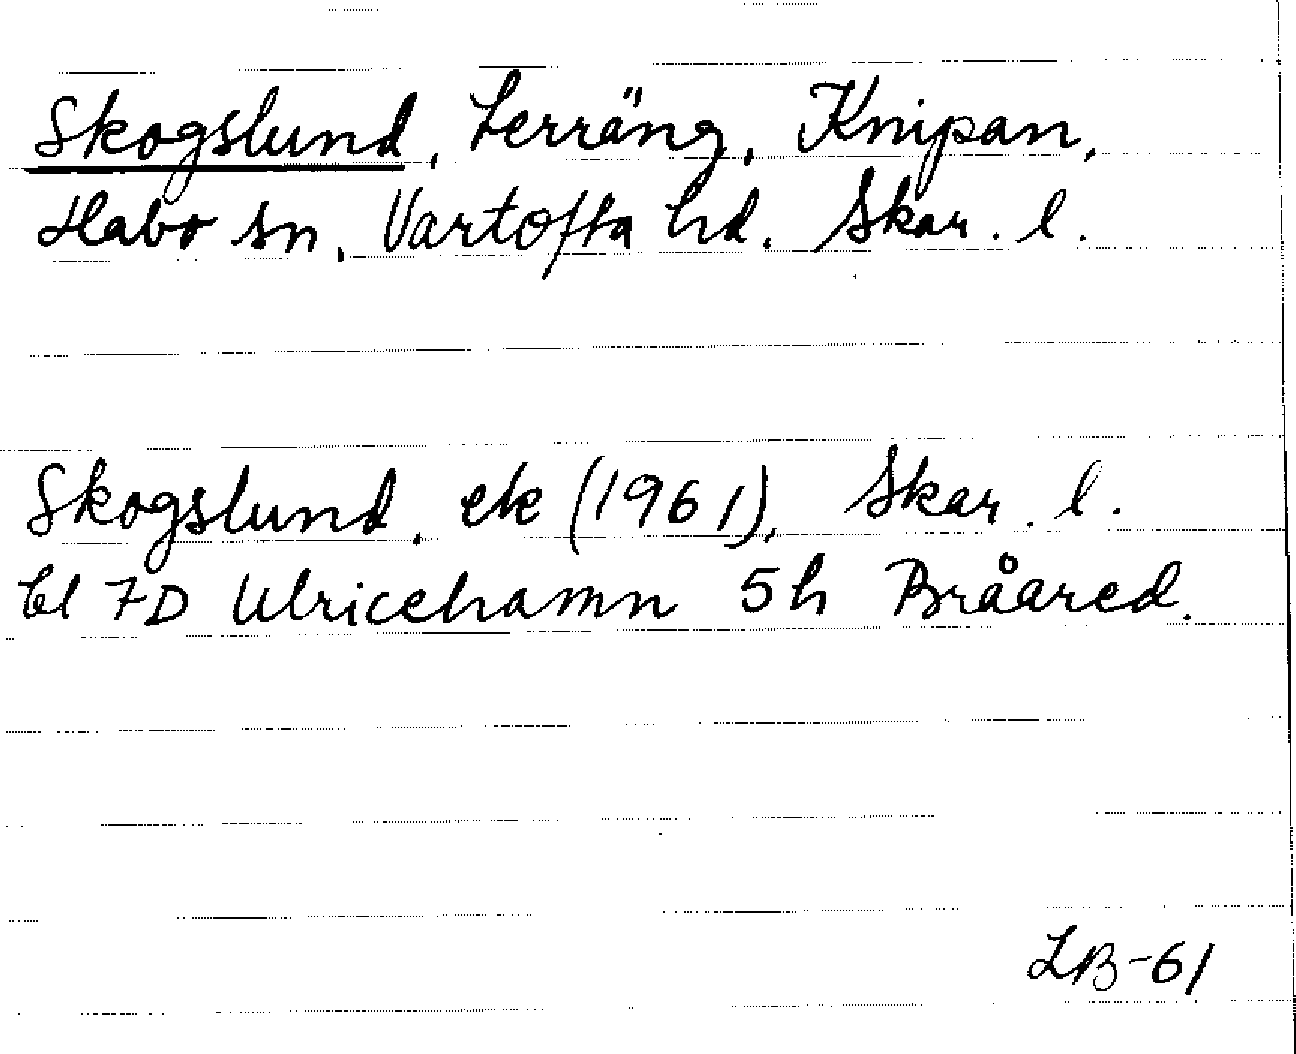 Skogslund, Lerräng, Knipan,
Habo sn, Vartofta hd. Skar. l.
Skogslund, ek (1961), Skar. l.
bl 7D Ulricehamn 5h Bråared.
LB-61